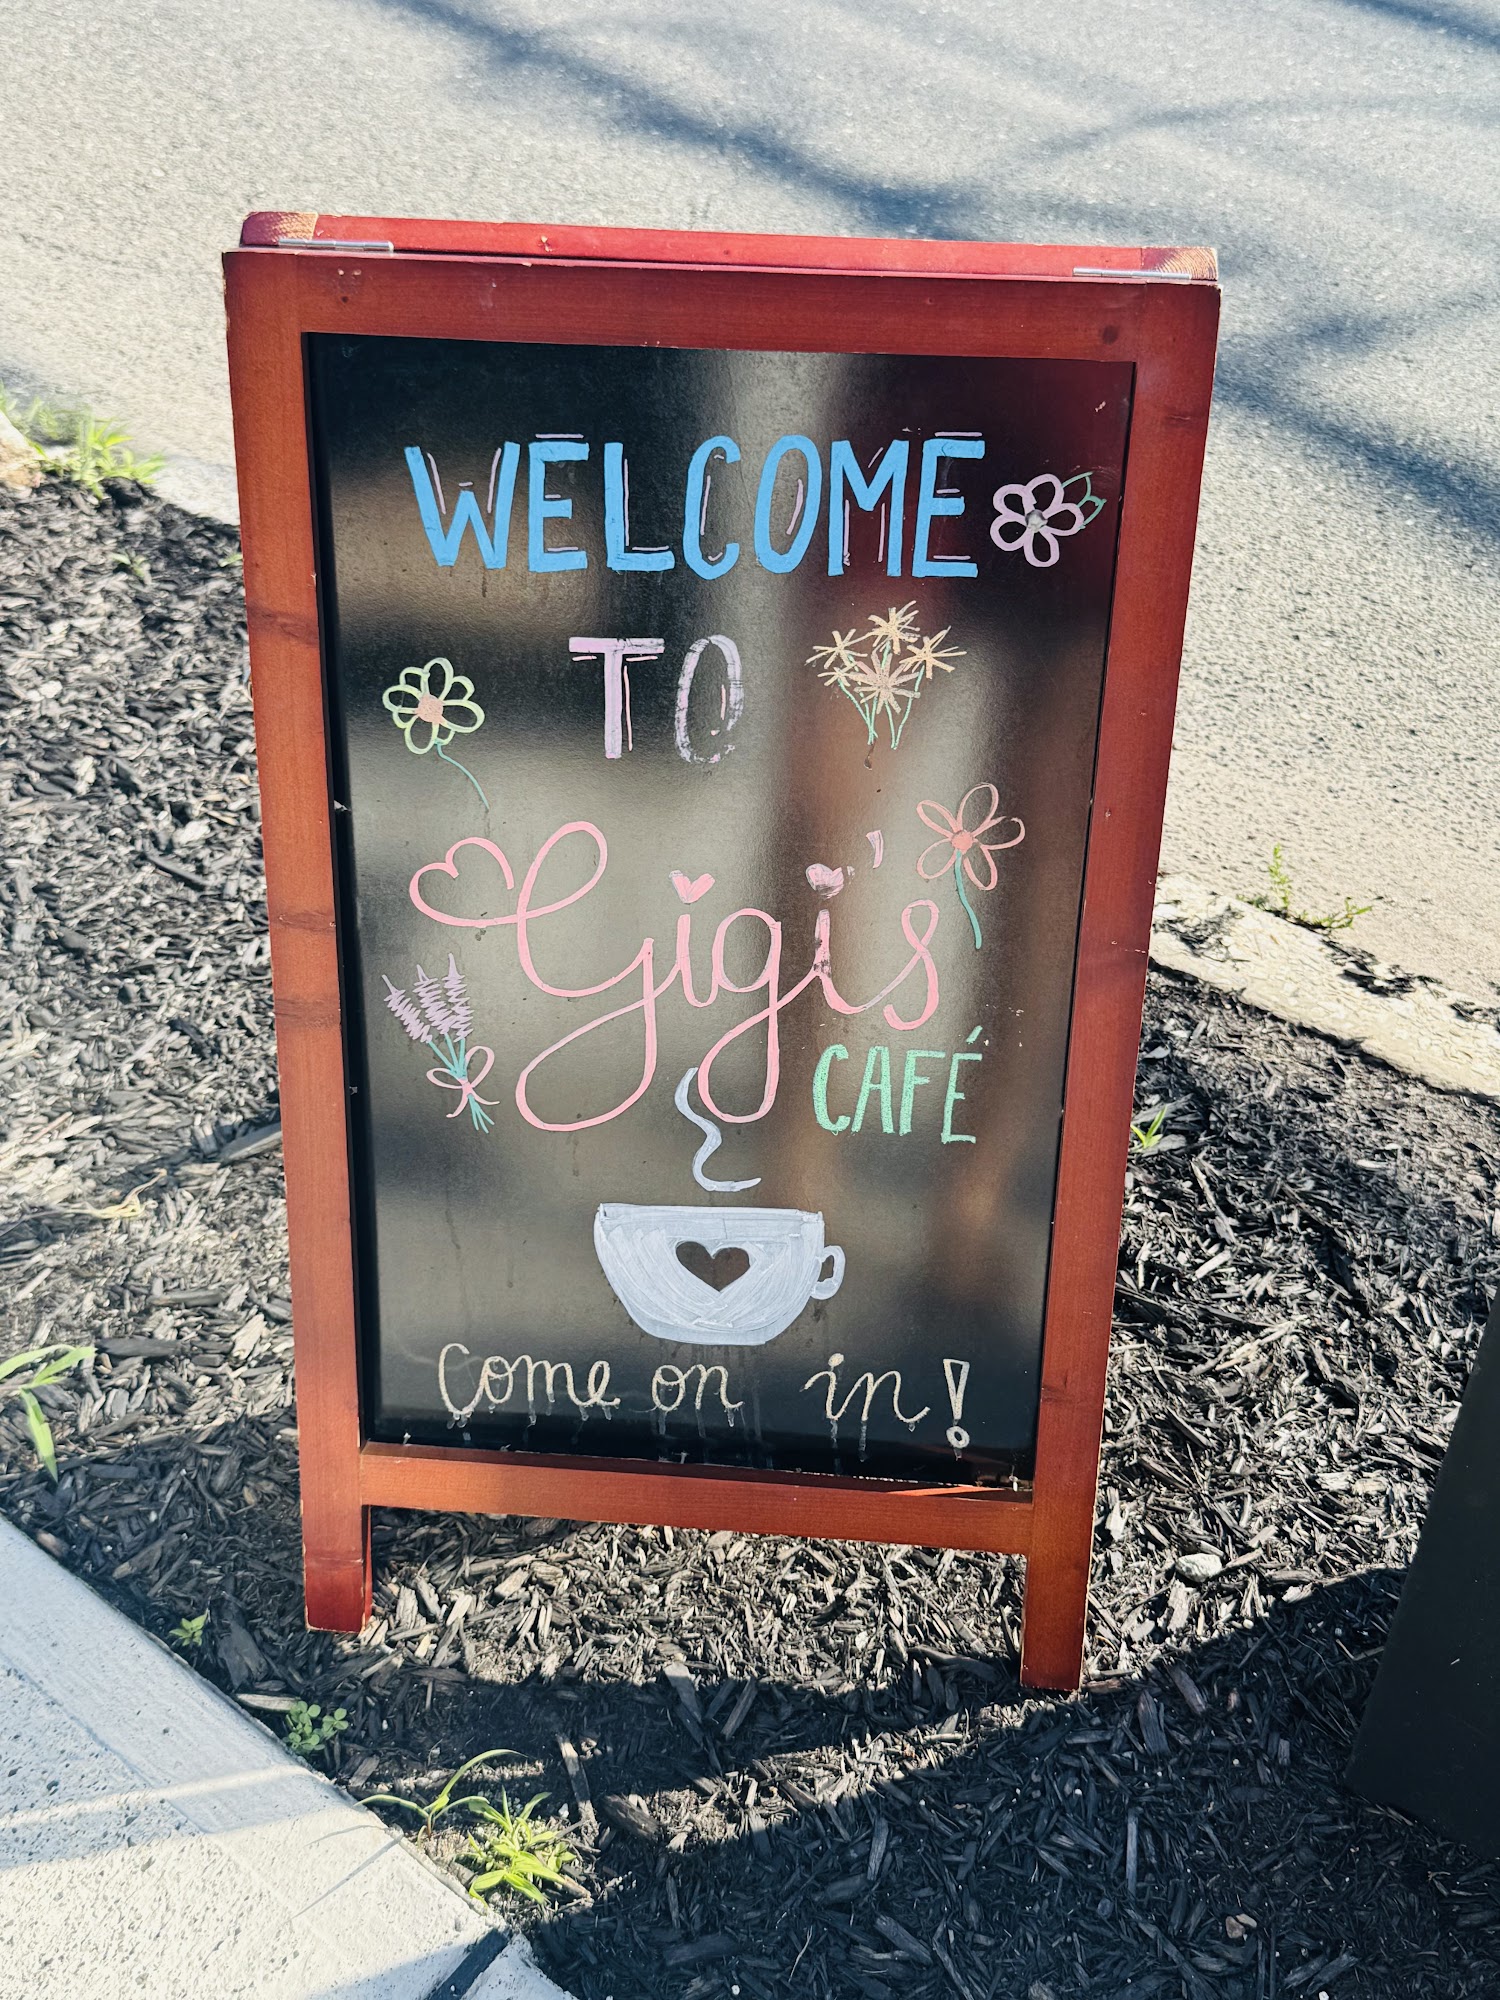 WELCOME
TO
Gigi's
CAFÉ
Come on in!